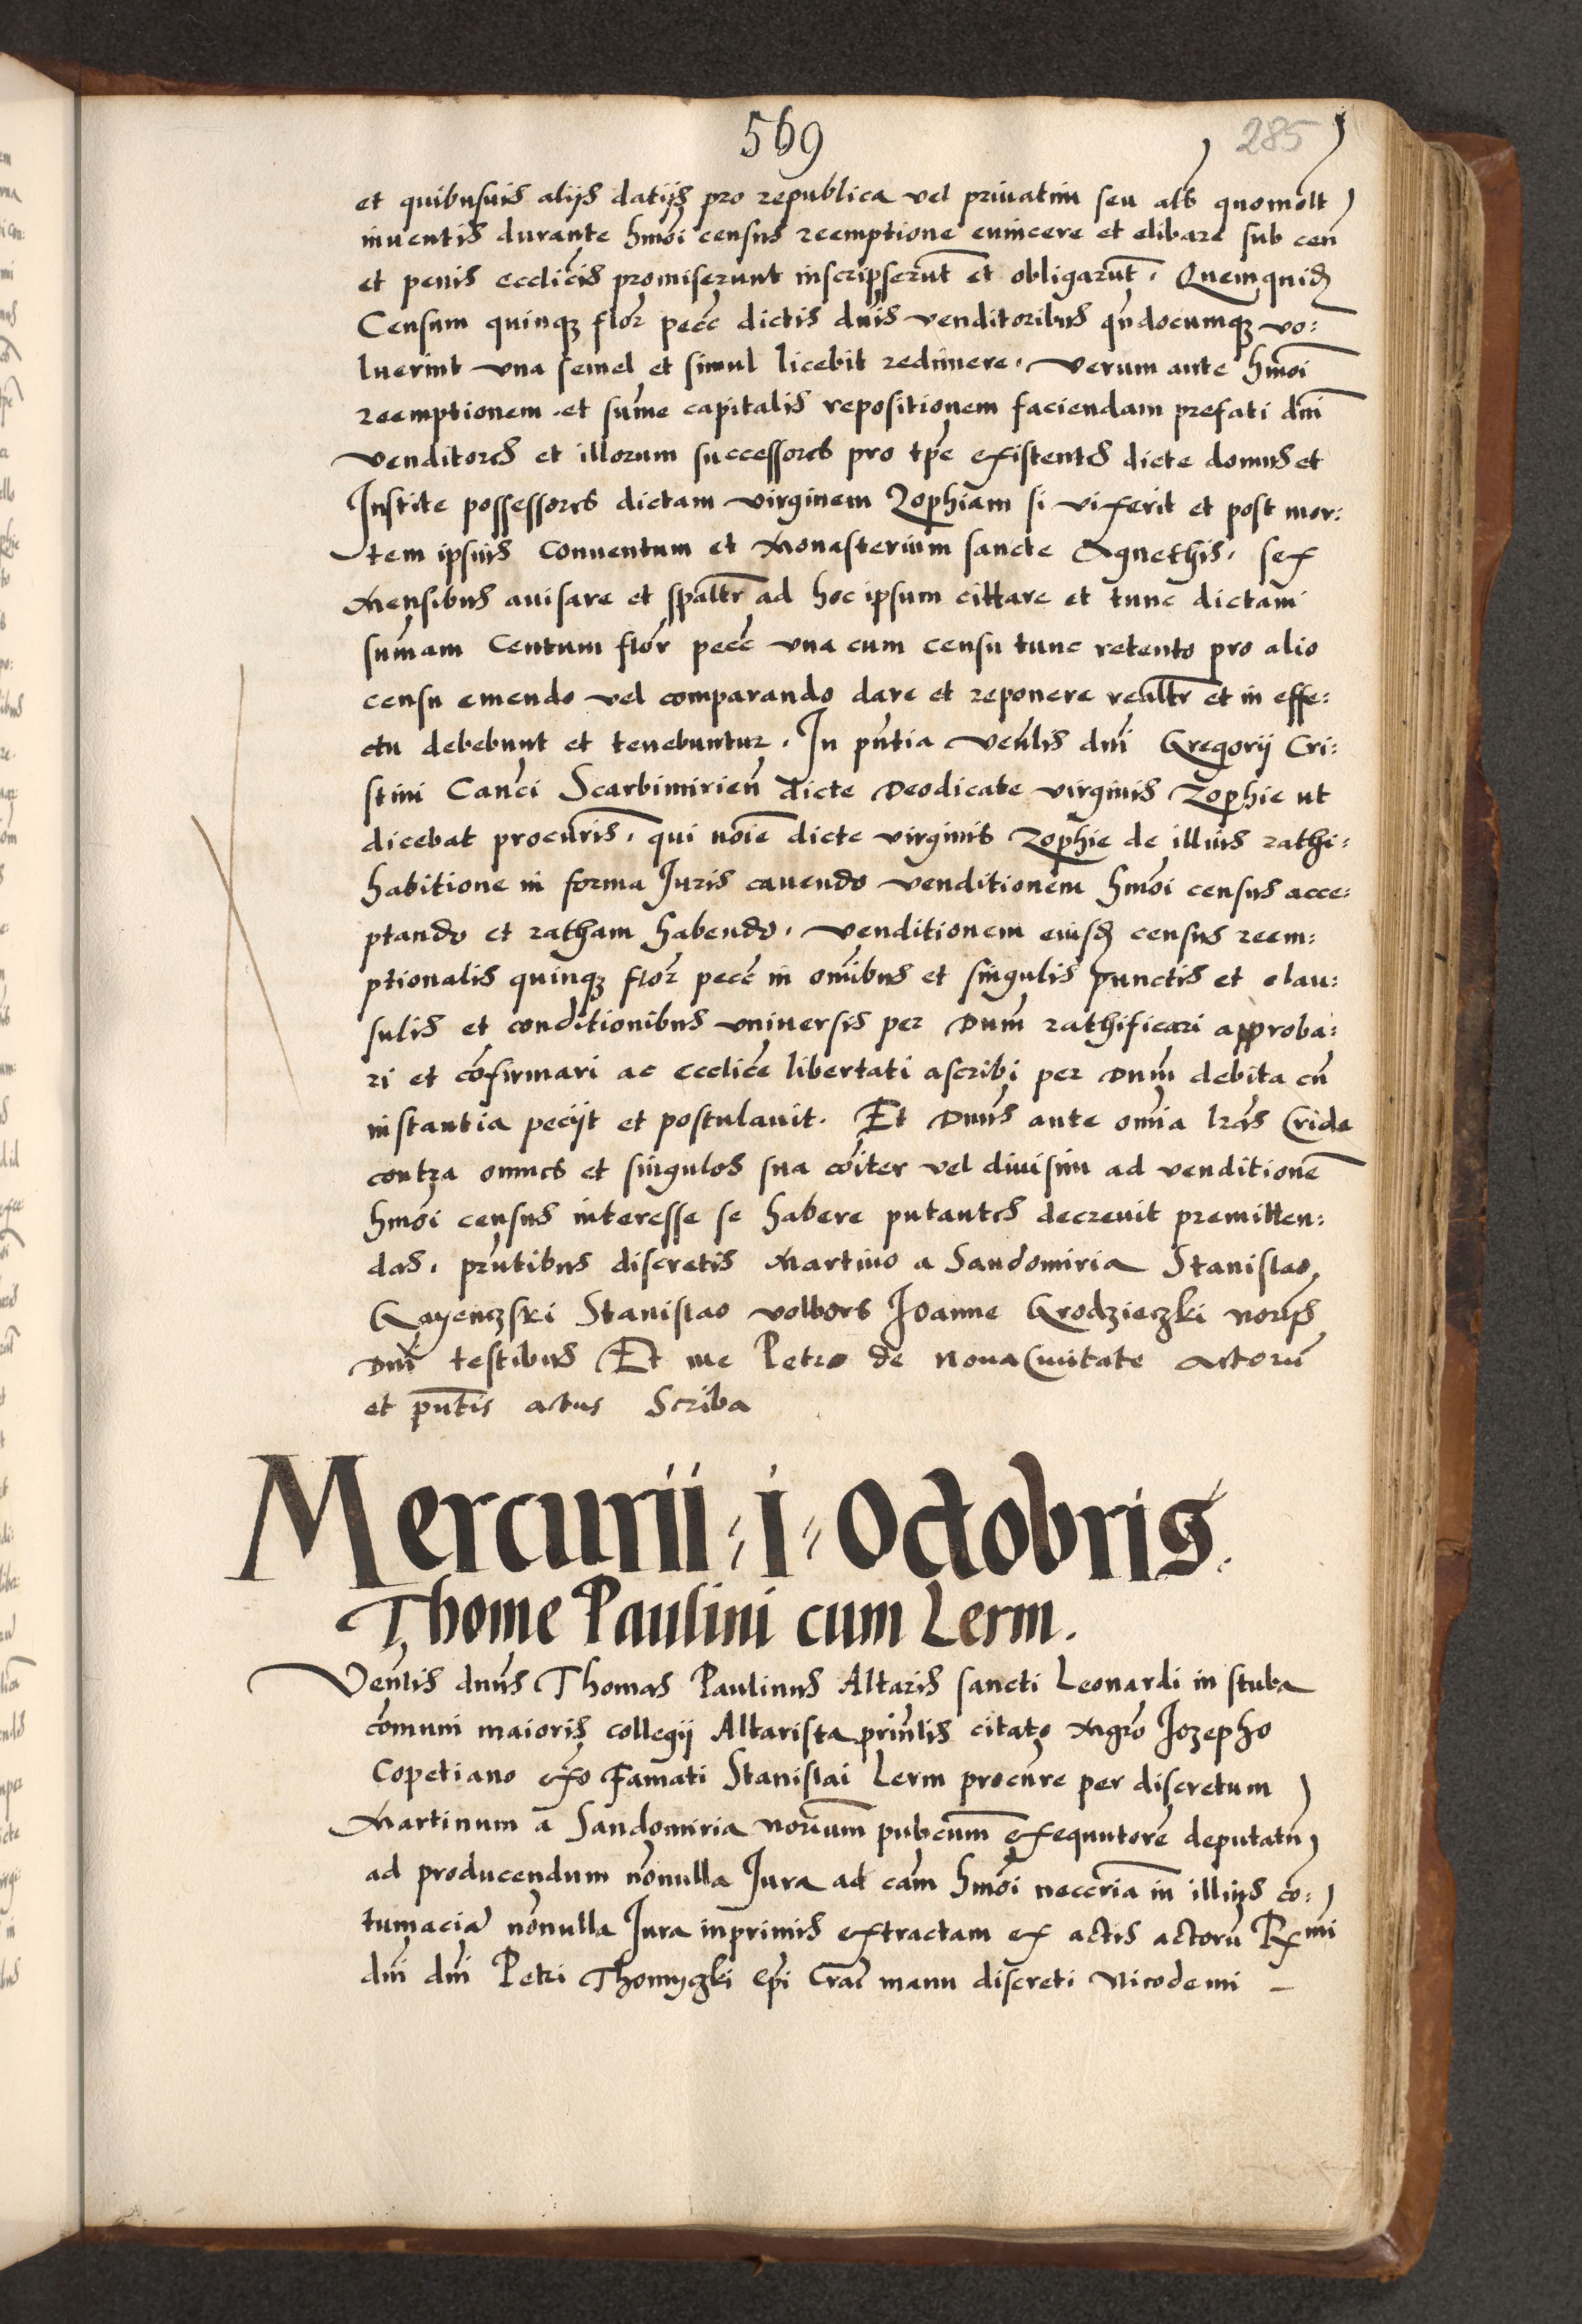 569
285
et quibusvis alijs datijs pro republica vel privatim seu als quomolt
inventis durante hmoi census reemptione evincere et elibare sub cen
et penis ecclicis promiserunt inscripserut et obligarut. Quemquid
Censum quinqz flor pecc dictis dnis venditoribus qndocumqz vo:
luerint una semel et simul licebit redimere. Verum ante hmoi
reemptionem et sume capitalis repositionem faciendam prefati dni
venditores et illorum successores pro tpe existentes dicte domus et
Instite possessores dictam virginem Zophiam si vixerit et post mor:
tem ipsius Conventum et Monasterium sancte Agnethis. sex
Mensibus avisare et spaltr ad hoc ipsum cittare et tunc dictam
sumam Centum flor pecc una cum censu tunc retento pro alio
censu emendo vel comparando dare et reponere realtr et in effe:
ctu debebunt et tenebuntur. In pntia venlis dni Gregorij Cri:
stini Canci Scarbimirien dicte Deodicate virginis Zophie ut
dicebat procuris. qui noie dicte virginis Zophie de illius rathi:
habitione in forma Juris cavendo venditionem hmoi census acce:
ptando et ratham habendo. venditionem eiusd census reem:
ptionalis quinqz flor pecc in omibus et singulis punctis et clau:
sulis et conditionibus universis per Dnm rathificari approba:
ri et cofirmari ac ecclice libertati ascribi per Dnm debita cu
instantia pecijt et postulavit. Et Dnus ante omia lras Cride
contra omnes et singulos sua coiter vel divisim ad venditione
hmoi census interesse se habere putantes decrevit premitten:
das. pntibus discretis Martino a Sandomiria Stanislao
Gayenczski Stanislao volbors Joanne Grodzieczki noriis
Dni testibus Et me Petro de Nova Civitate Actoru
et pntis actus Scriba
Mercurii i Octobris.
Thome Paulini cum Lerm.
Venlis dnus Thomas Paulinus Altaris sancti Leonardi in stuba
comuni maioris collegij Altarista prinlis citato Mgro Jozepho
Copetiano exo Famati Stanislai Lerm procure per discretum
Martinum a Sandomiria norium pubcum exequutore deputatu
ad producendum nonulla Jura ad cam hmoi necceria in illius co:
tumacia nonulla Jura inprimis extractam ex actis actoru Rxmi
dni dni Petri Thomyczki Epi Crac manu discreti Nicodemi